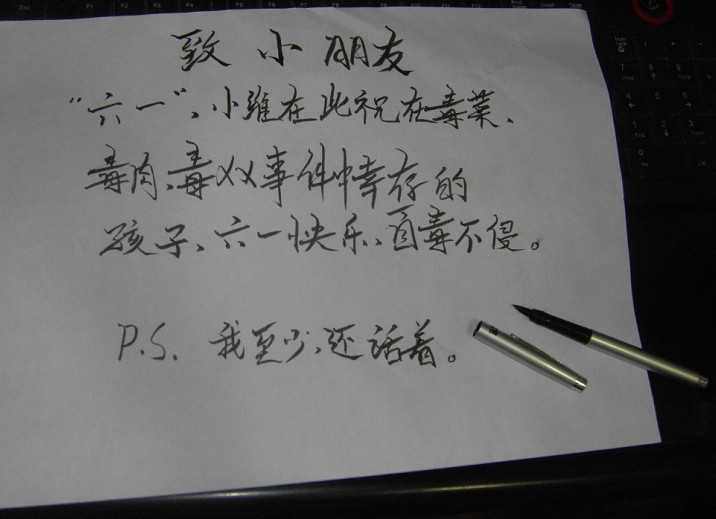 致小朋友
"六一"、小维在此祝在毒菜、
毒肉、毒XX事件中幸存的
孩子、六一快乐、百毒不侵。
P.S. 我至少、还活着。